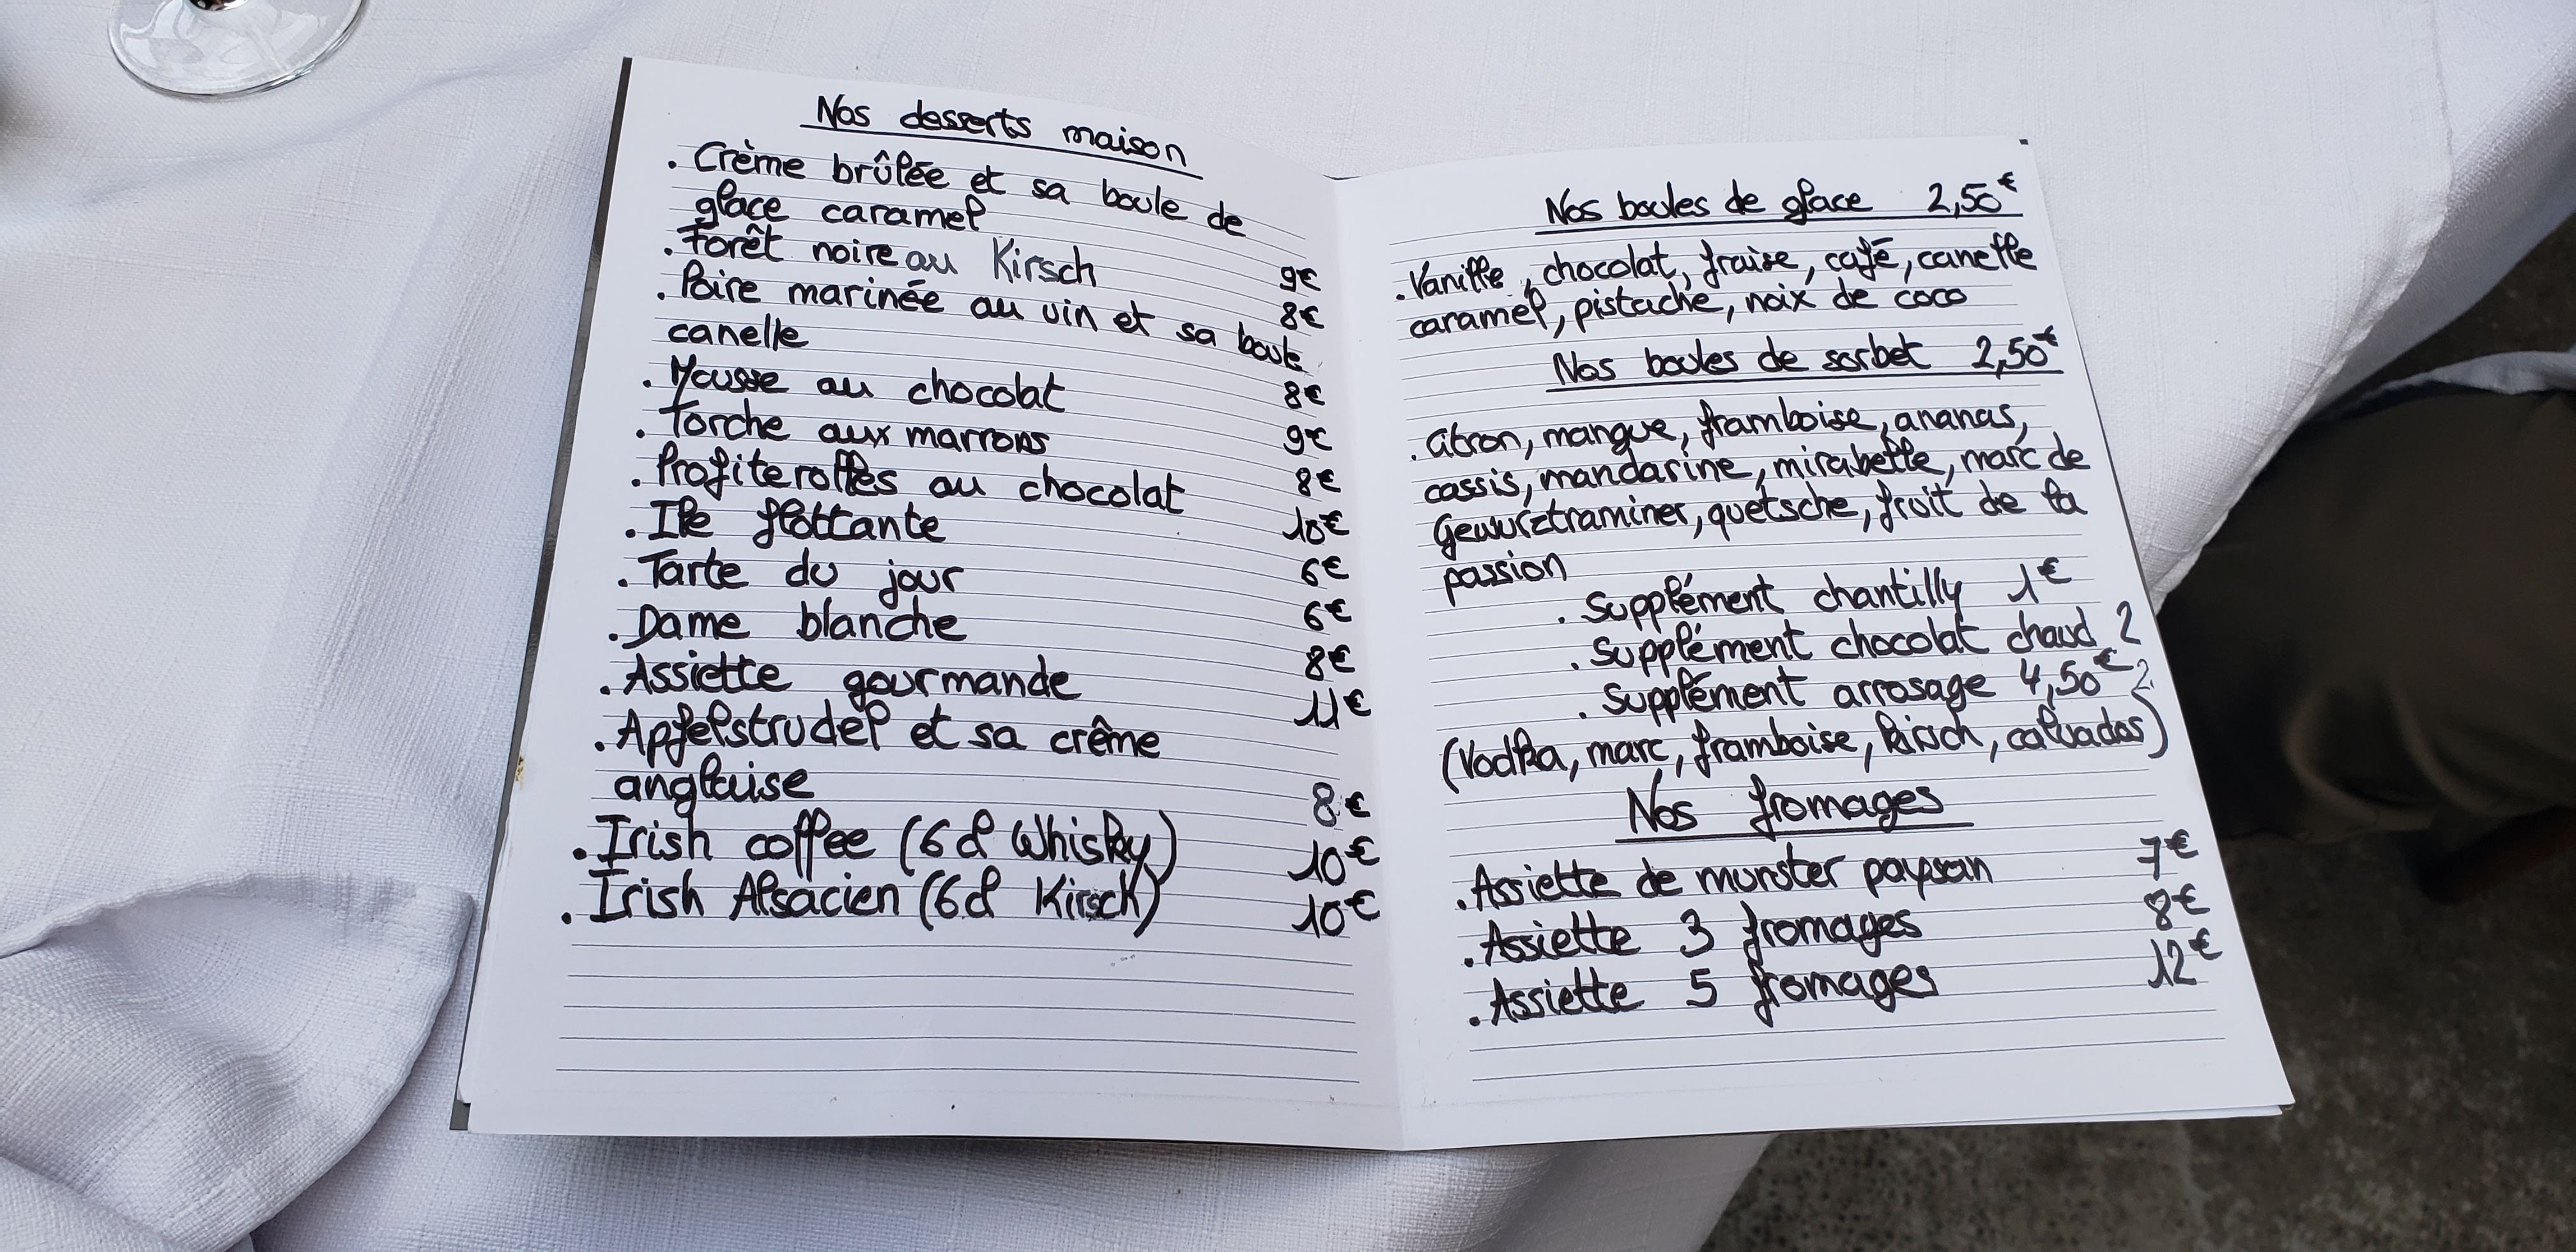 Nos desserts maison
. Crème brûlée et sa boule de
glace caramel 9€
. Forêt noire au Kirsch 8€
. Poire marinée au vin et sa boule
canelle 8€
. Mousse au chocolat 9€
. Torche aux marrons 8€
. Profiterolles au chocolat 10€
. Ile flottante 6€
. Tarte du jour 6€
. Dame blanche 8€
. Assiette gourmande 11€
. Apfelstrudel et sa crême
anglaise 8€
. Irish coffee (6cl Whisky) 10€
. Irish Alsacien (6cl Kirsch) 10€
Nos boules de glace 2,50€
. Vanille, chocolat, fraise, café, canelle
caramel, pistache, noix de coco
Nos boules de sorbet 2,50€
. citron, mangue, framboise, ananas,
cassis, mandarine, mirabelle, marc de
Gewurztraminer, quetsche, fruit de la
passion
. Supplément chantilly 1€
. Supplément chocolat chaud 2
. Supplément arrosage 4,50€
(Vodka, marc, framboise, kirsch, calvados)
Nos fromages
. Assiette de munster paysan 7€
. Assiette 3 fromages 8€
. Assiette 5 fromages 12€